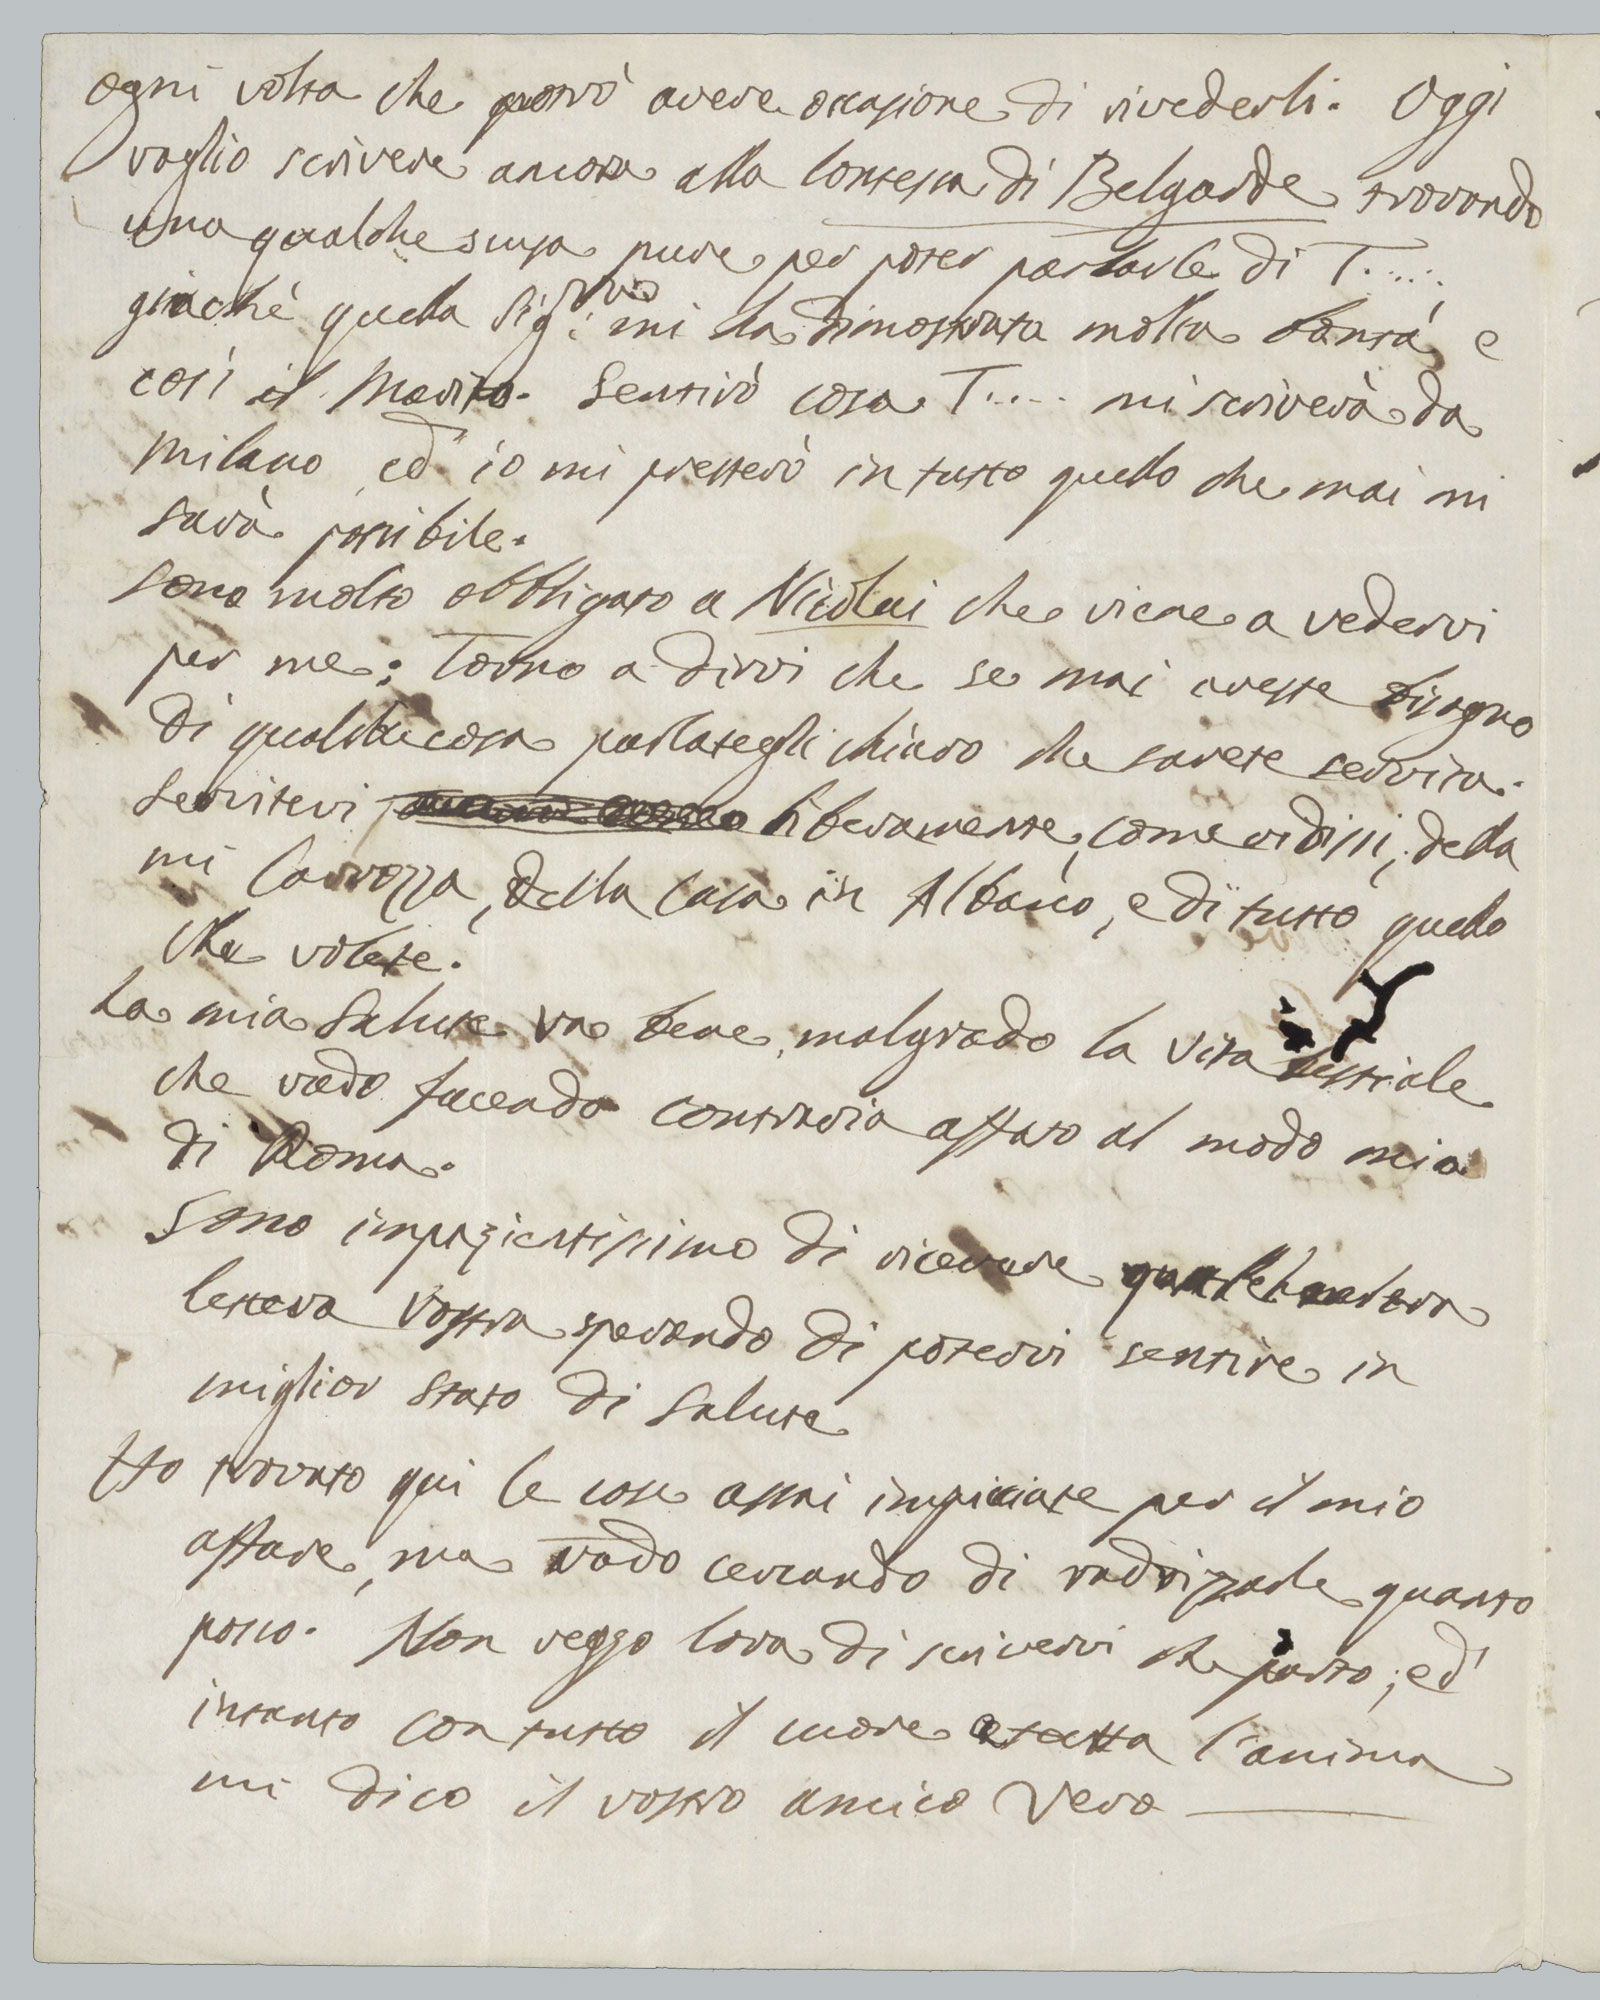 ogni volta che potrò avere occasione di rivederli. Oggi
voglio scrivere ancora alla Contessa di Belgarde trovando
una qualche scusa pure per poter parlarle di T.....;
giacché quella Sig.ra mi ha dimostrata molta bontà, e
così il Marito. Sentirò cosa T.... mi scriverà da
Milano, ed io mi presterò in tutto quello che mai mi
sarà possibile.
Sono molto obbligato a Nicolai che viene a vedervi
per me: Torno a dirvi che se mai aveste bisogno
di qualche cosa parlategli chiaro che sarete servita.
Servitevi liberamente, come vi dissi, della
mi Carrozza, della Casa in Albano, e di tutto quello
che volete.
La mia Salute va bene, malgrado la vita bestiale
che vado facendo contraria affato al modo mio
di Roma.
Sono impazientissimo di ricevere qualch'altra
lettera Vostra sperando di potervi sentire in
miglior stato di Salute
Ho trovato qui le cose assai impicciate per il mio
affare, ma vado cercando di radrizzarle quanto
posso. Non veggo l'ora di scrivervi che parto; ed
intanto con tutto il cuore e tutta l'anima
mi dico il vostro amico Vero